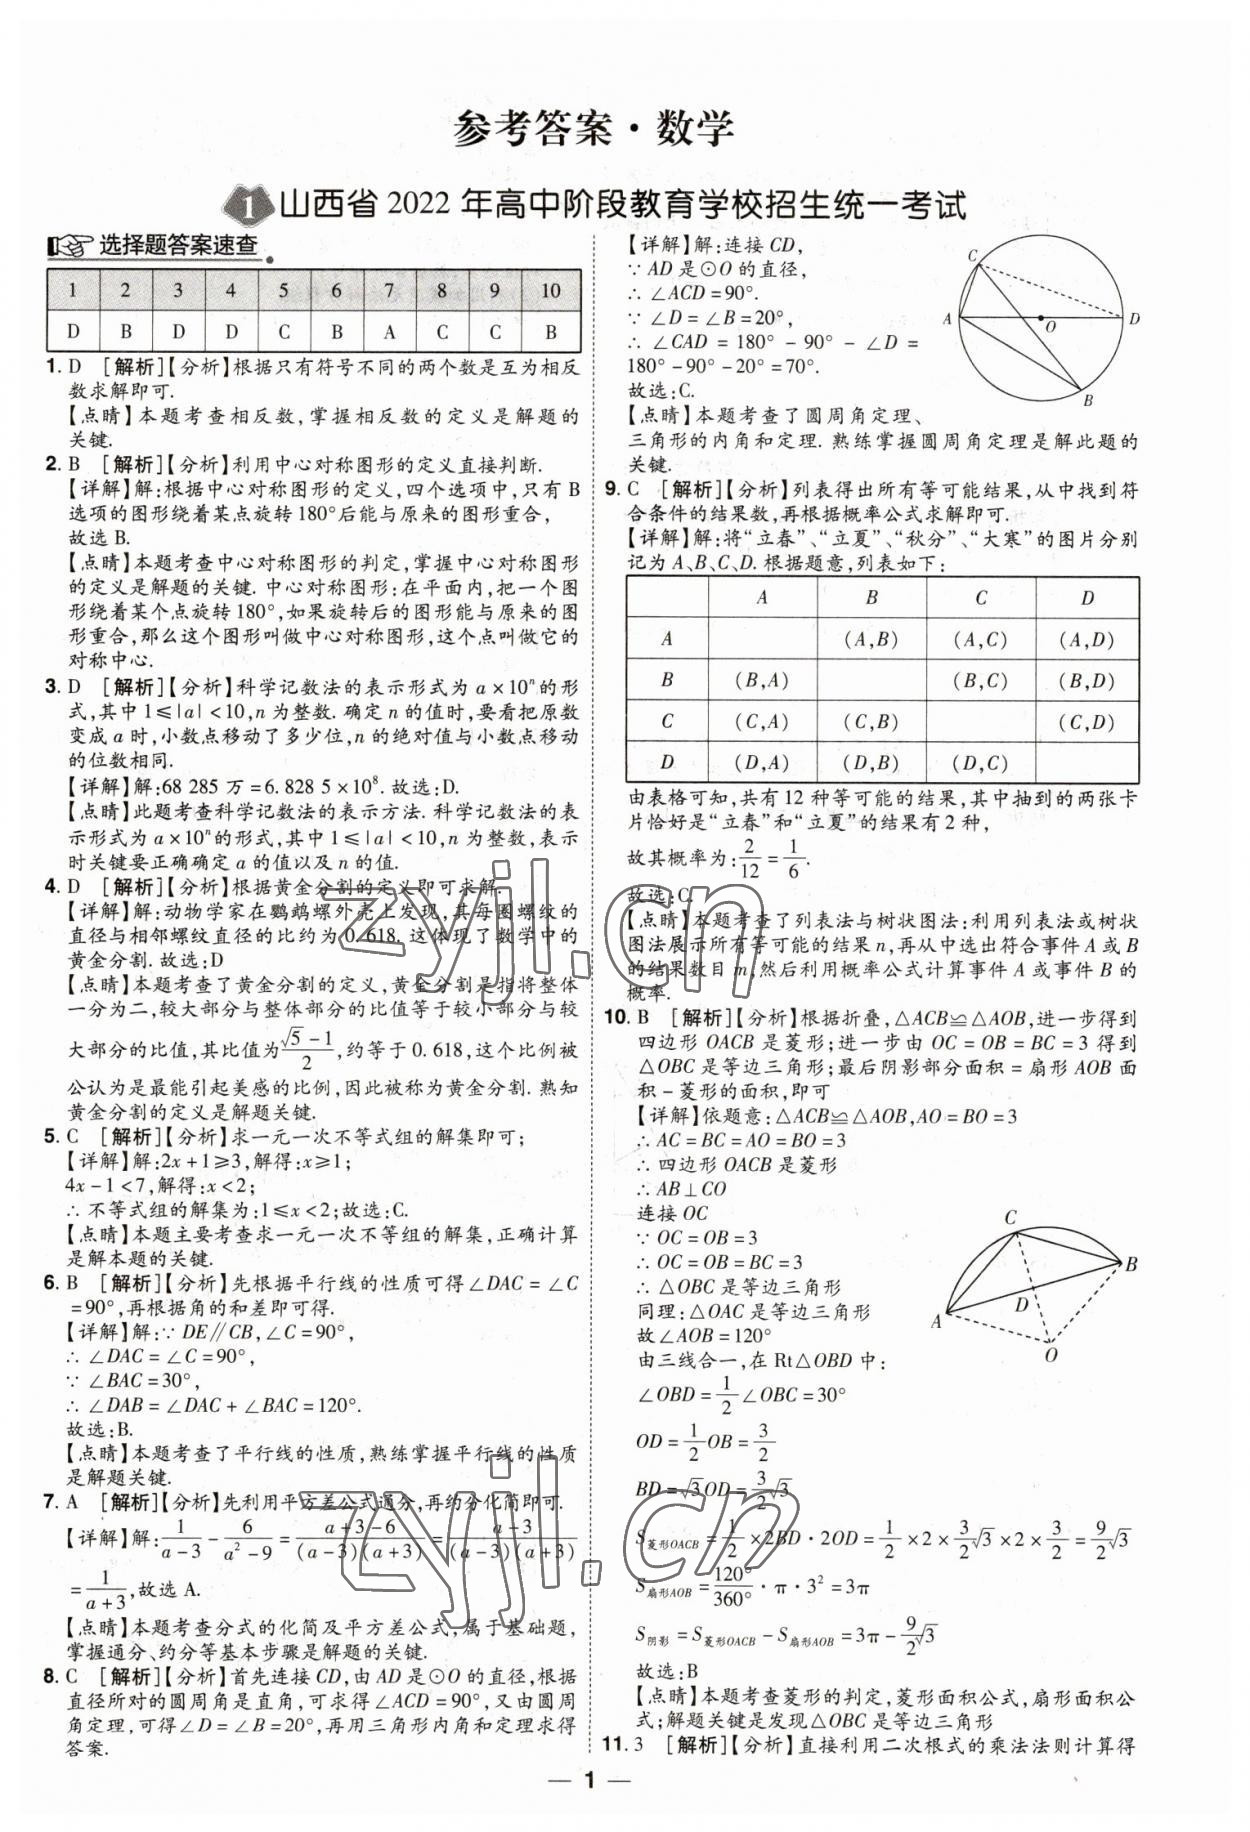 参考答案·数学
1 山西省 2022 年高中阶段教育学校招生统一考试
选择题答案速查
1 2 3 4 5 6 7 8 9 10
D B D D C B A C C B
1. D [解析]【分析】根据只有符号不同的两个数是互为相反
数求解即可.
【点睛】本题考查相反数,掌握相反数的定义是解题的
关键.
2. B [解析]【分析】利用中心对称图形的定义直接判断.
【详解】解:根据中心对称图形的定义,四个选项中,只有 B
选项的图形绕着某点旋转 180°后能与原来的图形重合,
故选 B.
【点睛】本题考查中心对称图形的判定,掌握中心对称图形
的定义是解题的关键. 中心对称图形:在平面内,把一个图
形绕着某个点旋转 180°,如果旋转后的图形能与原来的图
形重合,那么这个图形叫做中心对称图形,这个点叫做它的
对称中心.
3. D [解析]【分析】科学记数法的表示形式为 a×10ⁿ的形
式,其中 1≤|a|<10,n 为整数. 确定 n 的值时,要看把原数
变成 a 时,小数点移动了多少位,n 的绝对值与小数点移动
的位数相同.
【详解】解:68 285 万=6.828 5×10⁸. 故选:D.
【点睛】此题考查科学记数法的表示方法. 科学记数法的表
示形式为 a×10ⁿ的形式,其中 1≤|a|<10,n 为整数,表示
时关键要正确确定 a 的值以及 n 的值.
4. D [解析]【分析】根据黄金分割的定义即可求解.
【详解】解:动物学家在鹦鹉螺外壳上发现,其每圈螺纹的
直径与相邻螺纹直径的比约为 0.618,这体现了数学中的
黄金分割. 故选:D
【点睛】本题考查了黄金分割的定义,黄金分割是指将整体
一分为二,较大部分与整体部分的比值等于较小部分与较
大部分的比值,其比值为(√5-1)/2,约等于 0.618,这个比例被
公认为是最能引起美感的比例,因此被称为黄金分割. 熟知
黄金分割的定义是解题关键.
5. C [解析]【分析】求一元一次不等式组的解集即可;
【详解】解:2x+1≥3,解得:x≥1;
4x-1<7,解得:x<2;
∴ 不等式组的解集为:1≤x<2;故选:C.
【点睛】本题主要考查求一元一次不等组的解集,正确计算
是解本题的关键.
6. B [解析]【分析】先根据平行线的性质可得∠DAC=∠C
=90°,再根据角的和差即可得.
【详解】解:∵ DE∥CB,∠C=90°,
∴ ∠DAC=∠C=90°,
∵ ∠BAC=30°,
∴ ∠DAB=∠DAC+∠BAC=120°.
故选:B.
【点睛】本题考查了平行线的性质,熟练掌握平行线的性质
是解题关键.
7. A [解析]【分析】先利用平方差公式通分,再约分化简即可.
【详解】解:1/(a-3)-6/(a²-9)=(a+3-6)/((a-3)(a+3))=(a+3)/((a-3)(a+3))
=1/(a+3),故选 A.
【点睛】本题考查分式的化简及平方差公式,属于基础题,
掌握通分、约分等基本步骤是解题的关键.
8. C [解析]【分析】首先连接 CD,由 AD 是⊙O 的直径,根据
直径所对的圆周角是直角,可求得∠ACD=90°,又由圆周
角定理,可得∠D=∠B=20°,再用三角形内角和定理求得
答案.
【详解】解:连接 CD,
∵ AD 是⊙O 的直径,
∴ ∠ACD=90°.
∵ ∠D=∠B=20°,
∴ ∠CAD=180°-90°-∠D=
180°-90°-20°=70°.
故选:C.
【点睛】本题考查了圆周角定理、
三角形的内角和定理. 熟练掌握圆周角定理是解此题的
关键.
C
A
O
D
B
9. C [解析]【分析】列表得出所有等可能结果,从中找到符
合条件的结果数,再根据概率公式求解即可.
【详解】解:将“立春”、“立夏”、“秋分”、“大寒”的图片分别
记为 A、B、C、D. 根据题意,列表如下:
A B C D
A (A,B) (A,C) (A,D)
B (B,A) (B,C) (B,D)
C (C,A) (C,B) (C,D)
D (D,A) (D,B) (D,C)
由表格可知,共有 12 种等可能的结果,其中抽到的两张卡
片恰好是“立春”和“立夏”的结果有 2 种,
故其概率为:2/12=1/6.
故选:C.
【点睛】本题考查了列表法与树状图法:利用列表法或树状
图法展示所有等可能的结果 n,再从中选出符合事件 A 或 B
的结果数目 m,然后利用概率公式计算事件 A 或事件 B 的
概率.
10. B [解析]【分析】根据折叠,△ACB≌△AOB,进一步得到
四边形 OACB 是菱形;进一步由 OC=OB=BC=3 得到
△OBC 是等边三角形;最后阴影部分面积=扇形 AOB 面
积-菱形的面积,即可
【详解】依题意:△ACB≌△AOB,AO=BO=3
∴ AC=BC=AO=BO=3
∴ 四边形 OACB 是菱形
∴ AB⊥CO
连接 OC
∵ OC=OB=3
∴ OC=OB=BC=3
∴ △OBC 是等边三角形
同理:△OAC 是等边三角形
故∠AOB=120°
由三线合一,在 Rt△OBD 中:
∠OBD=1/2∠OBC=30°
OD=1/2OB=3/2
BD=√3OD=3/2√3
S菱形OACB=1/2×2BD·2OD=1/2×2×3/2√3×2×3/2=9/2√3
S扇形AOB=120°/360°·π·3²=3π
S阴影=S菱形OACB-S扇形AOB=3π-9/2√3
故选:B
【点睛】本题考查菱形的判定,菱形面积公式,扇形面积公
式;解题关键是发现△OBC 是等边三角形
C
B
D
A
O
11. 3 [解析]【分析】直接利用二次根式的乘法法则计算得
— 1 —
zyjl.cn
zyjl.cn